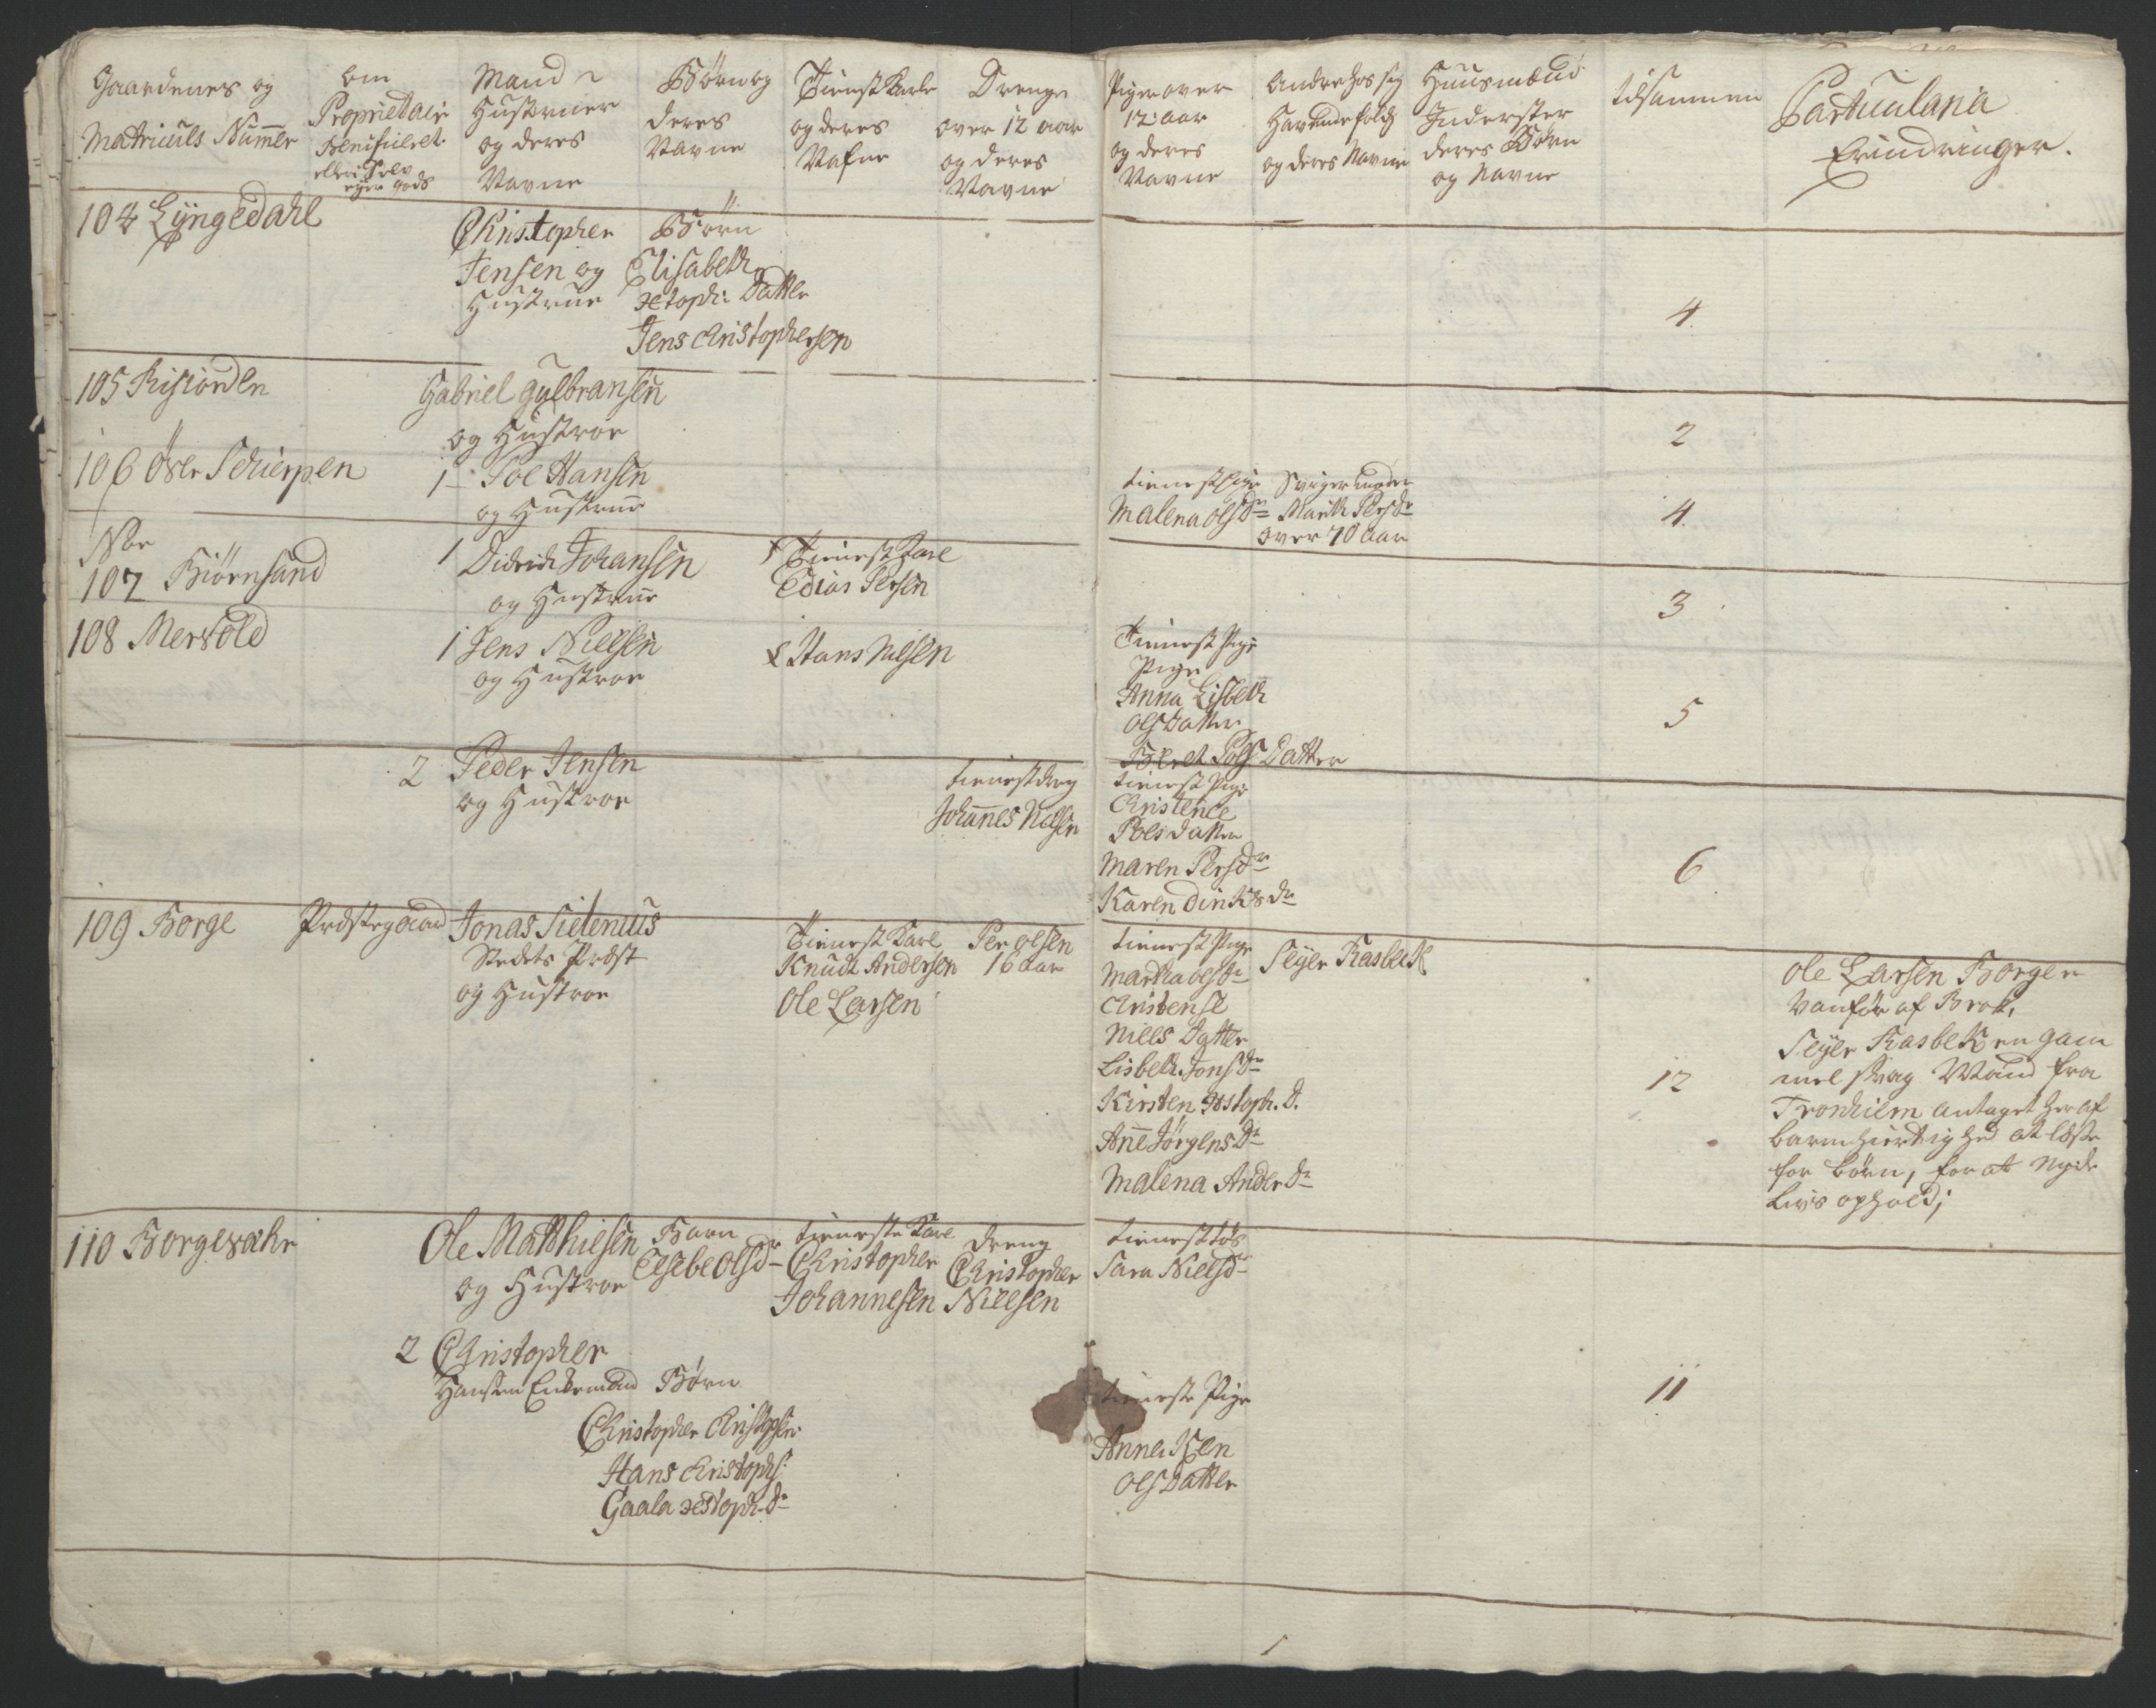 Gaardenes og
Matriculs Numer
om
Proprietair
Benificeret
eller Selv
eyer gods
Mand
Hustruer
og deres
Navne
Børn og
deres
Navne
Tienest Karle
og deres
Nafne
Drenge
over 12 aar
og deres
Navne
Piger over
12 aar
og deres
Navne
Andre hos sig
Havende folch
og deres Navne
Huusmænd
Inderster
deres Børn
og Navne
tilsammen
Particularia
Erindringer.
104 Lyngedahl
Christopher
Jensen og
Hustrue
Børn
Elisabeth
xstoph: Datter
Jens Christophersen
4.
105 Risiorden
Gabriel Gulbransen
og Hustroe
2
106 Øsr Schierpen
1 Poe Hansen
og Hustrue
tienest Pige
Malena Olsdr
Svigermoder
Marith Persdr
over 70 aar
4.
Nor
107 Biørnsand
1 Didrich Johansen
og Hustrue
Tienest Karl
Edias Persen
3
108 Mervold
1 Jens Nielsen
og Hustroe
Hans Nilsen
Tienest Pige
Pige
Anna Lisbeth
Ols Datter
Beret Pols Datter
5
2 Peder Jensen
og Hustroe
tienestdreng
Johannes Nilsen
tienest Pige
Christence
Poelsdatter
Maren Persdr
Karen Diriksdr
6
109 Borge
Præstegaard
Jonas Sielenius
Stedets Præst
og Hustroe
Tienest Karl
Knudt Andersen
Ole Larsen
Per Olsen
16 aar
tienest Pige
Martha Olsdr
Christense
Niels Datter
Lisbeth Jonsdr
Kirsten xstoph. D.
Anne Jørgensdr
Malena Anderdr
Sejer Rasbech
12
Ole Larsen Borger
Vanfør af Brok,
Sejer Rasbek en gam
mel svag Mand fra
Tronhiem antaget her af
barmhiertighed at læse
for børn, for at nyde
livs ophold;
110 Borgevæhr
Ole Matthiesen
og Hustroe
Barn
Elsebe Olsdr
tieneste Karl
Christopher
Johannesen
Dreng
Christopher
Nielsen
tienesttøs
Sara Nielsdr
2 Christopher
Hansen Enkemand
Børn
Christopher Christophsen
Hans Christophs:
Gaala xstoph. dr
tieneste Pige
Anneken
Ols Datter
11